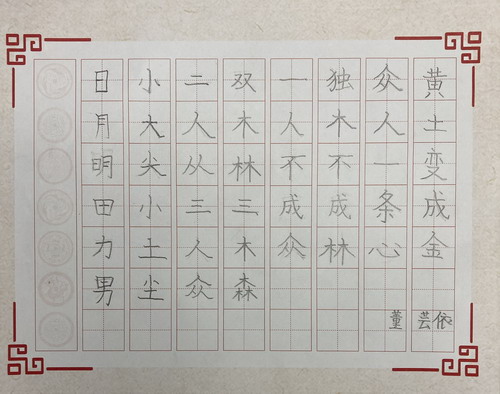 日月明田力男
小大尖小土尘
二人从三人众
双木林三木森
一人不成众
独木不成林
众人一条心
黄土变成金
董芸依